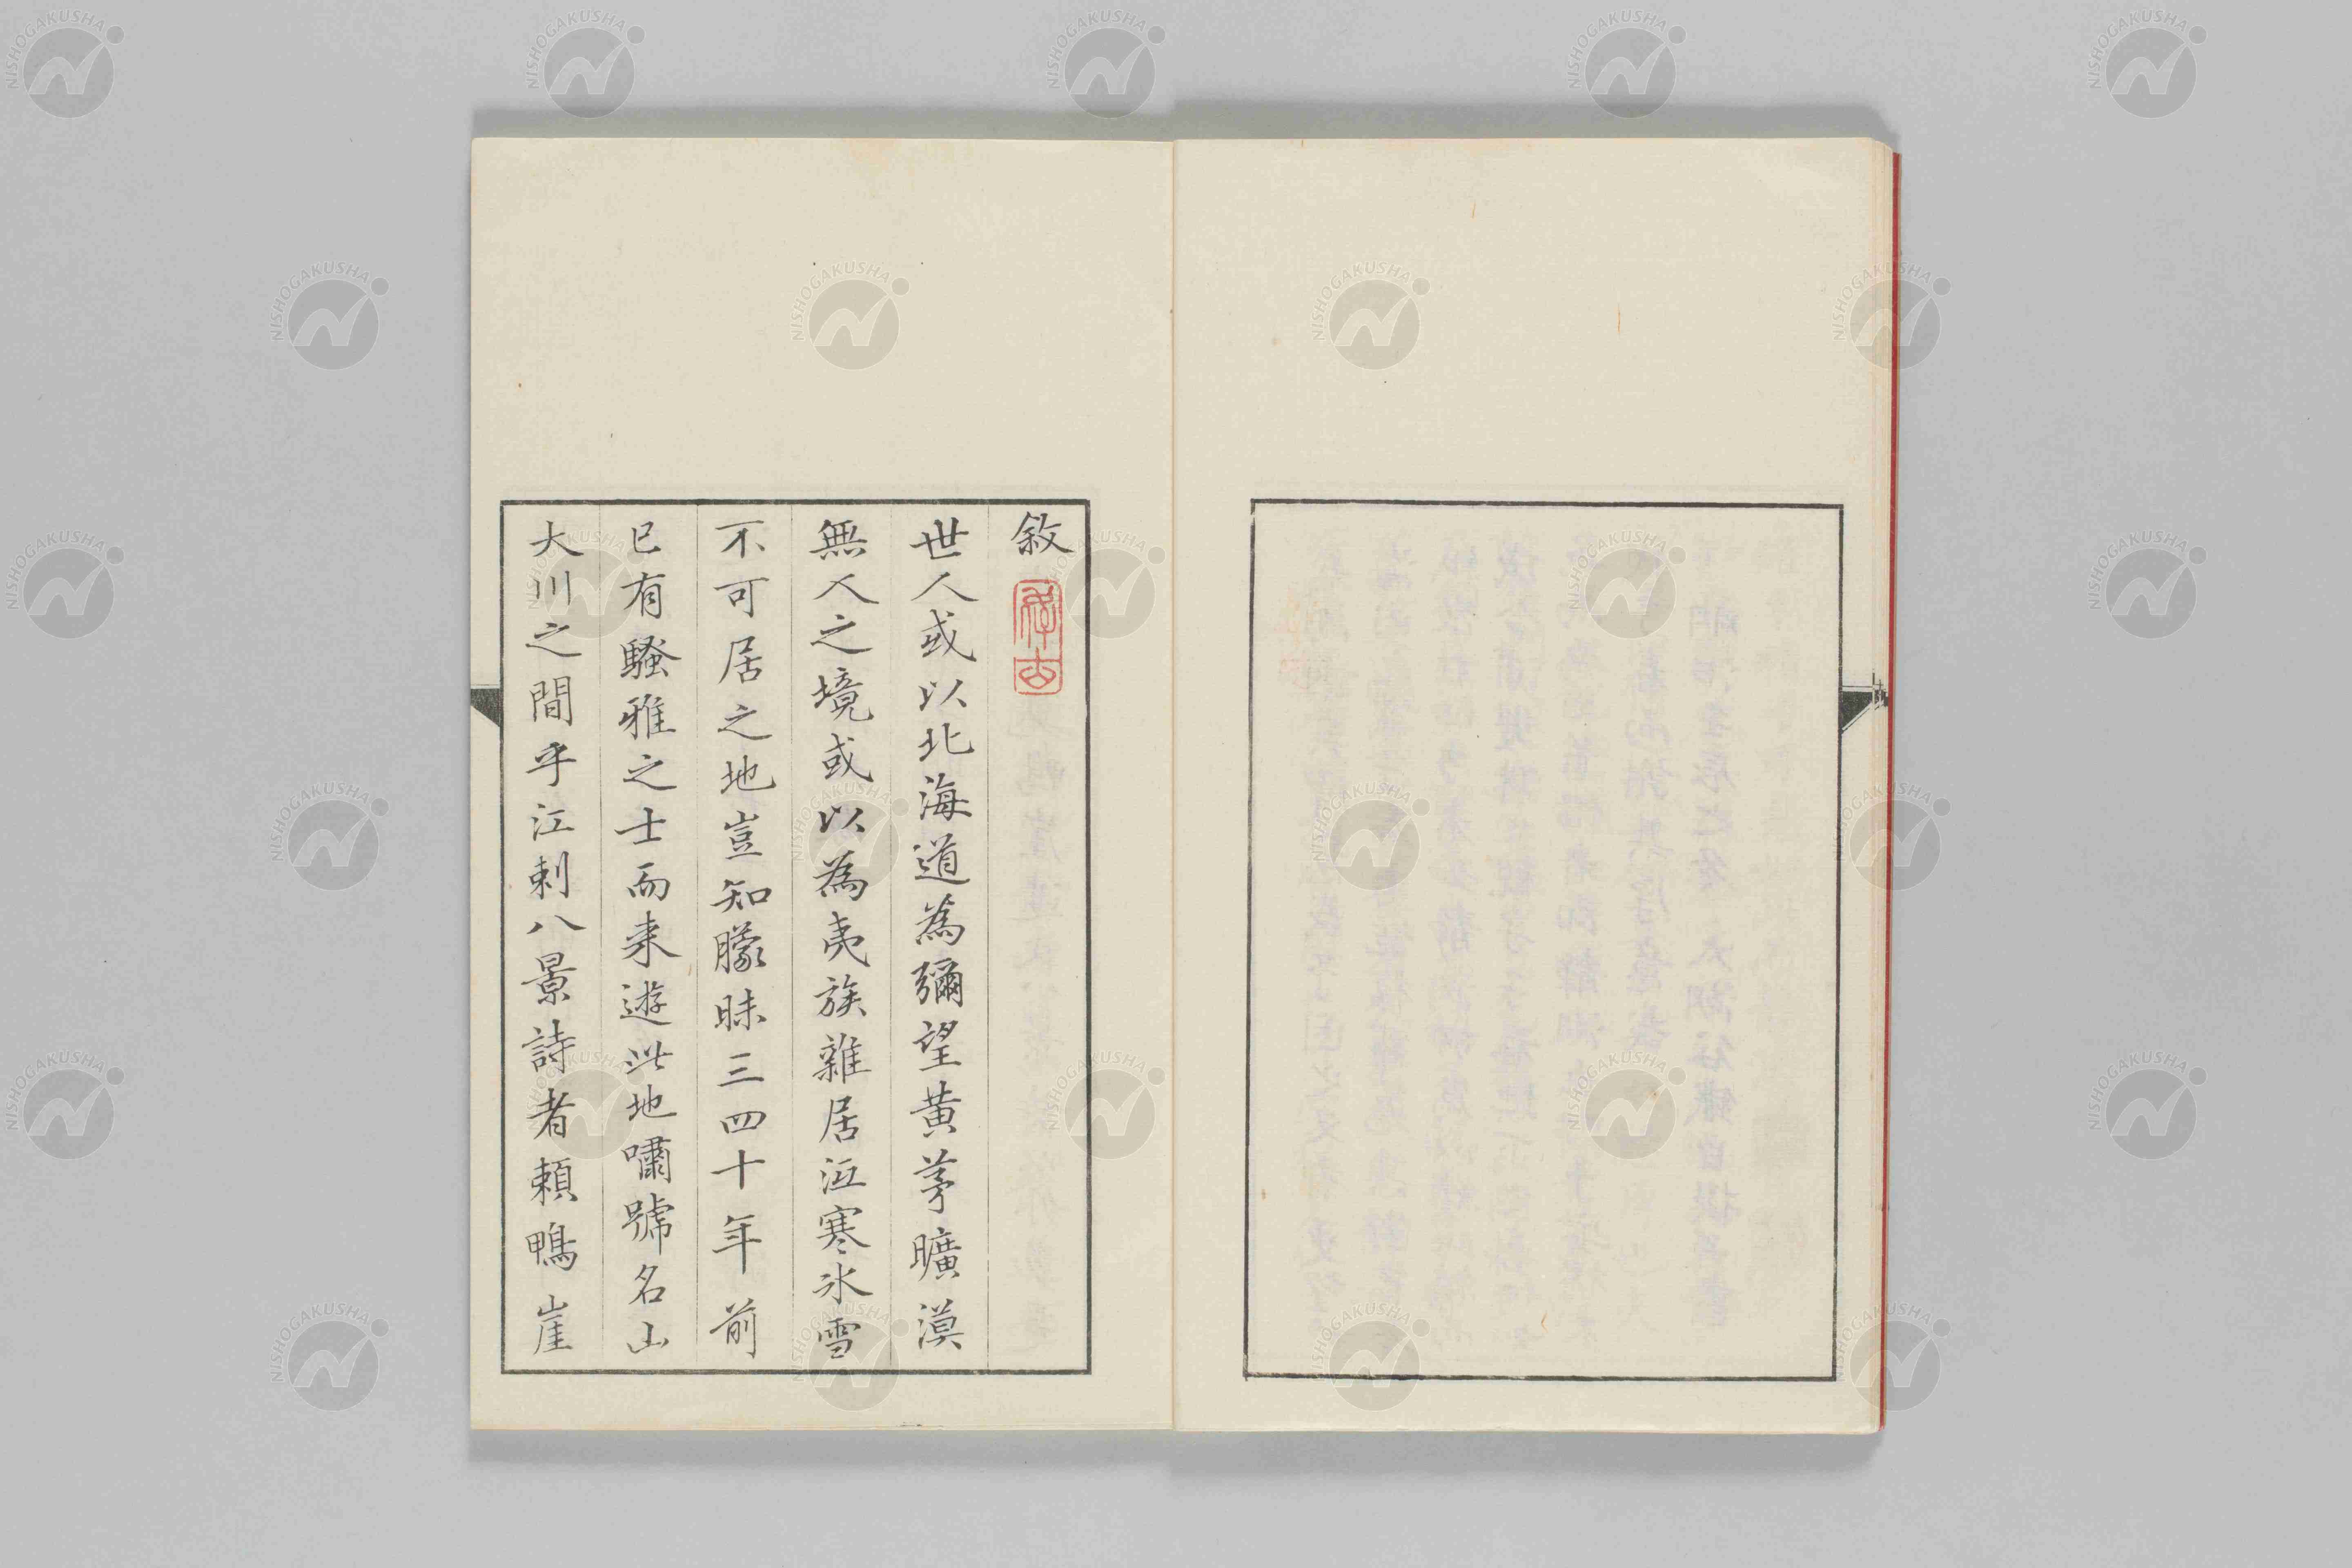 敘
世人或以北海道為彌望黄茅曠漠
無人之境或以為夷族雜居沍寒氷雪
不可居之地豈知朦昧三四十年前
已有騷雅之士而来遊此地嘯號名山
大川之間乎江刺八景詩者頼鴨崖
NISHOGAKUSHA